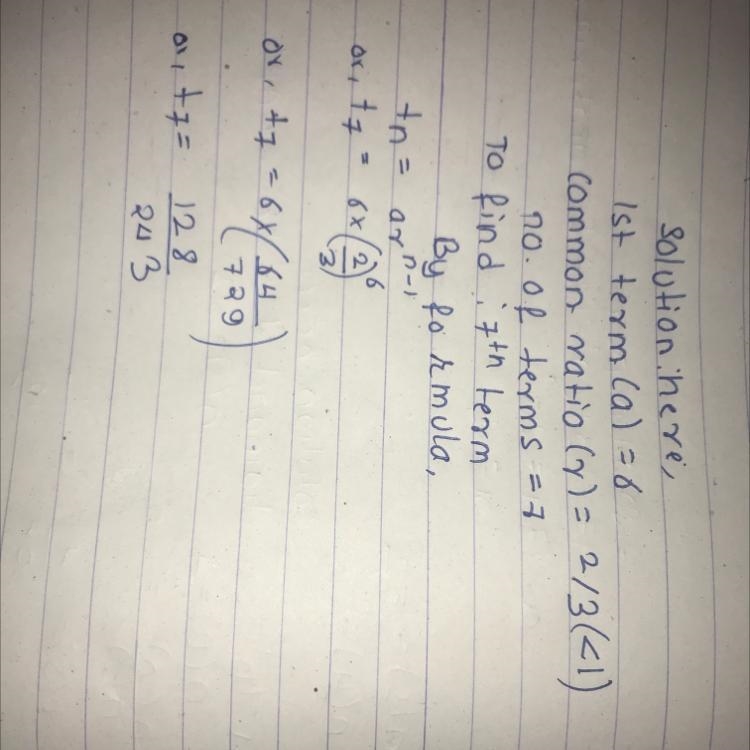 Solution: here,
1st term (a) = 6
Common ratio (r) = 2/3 (<1)
no. of terms = 7
To find: 7th term
By formula,
tn = ar^n-1
or, t7 = 6 x (2/3)^6
or, t7 = 6 x (64/729)
or, t7 = 128/243